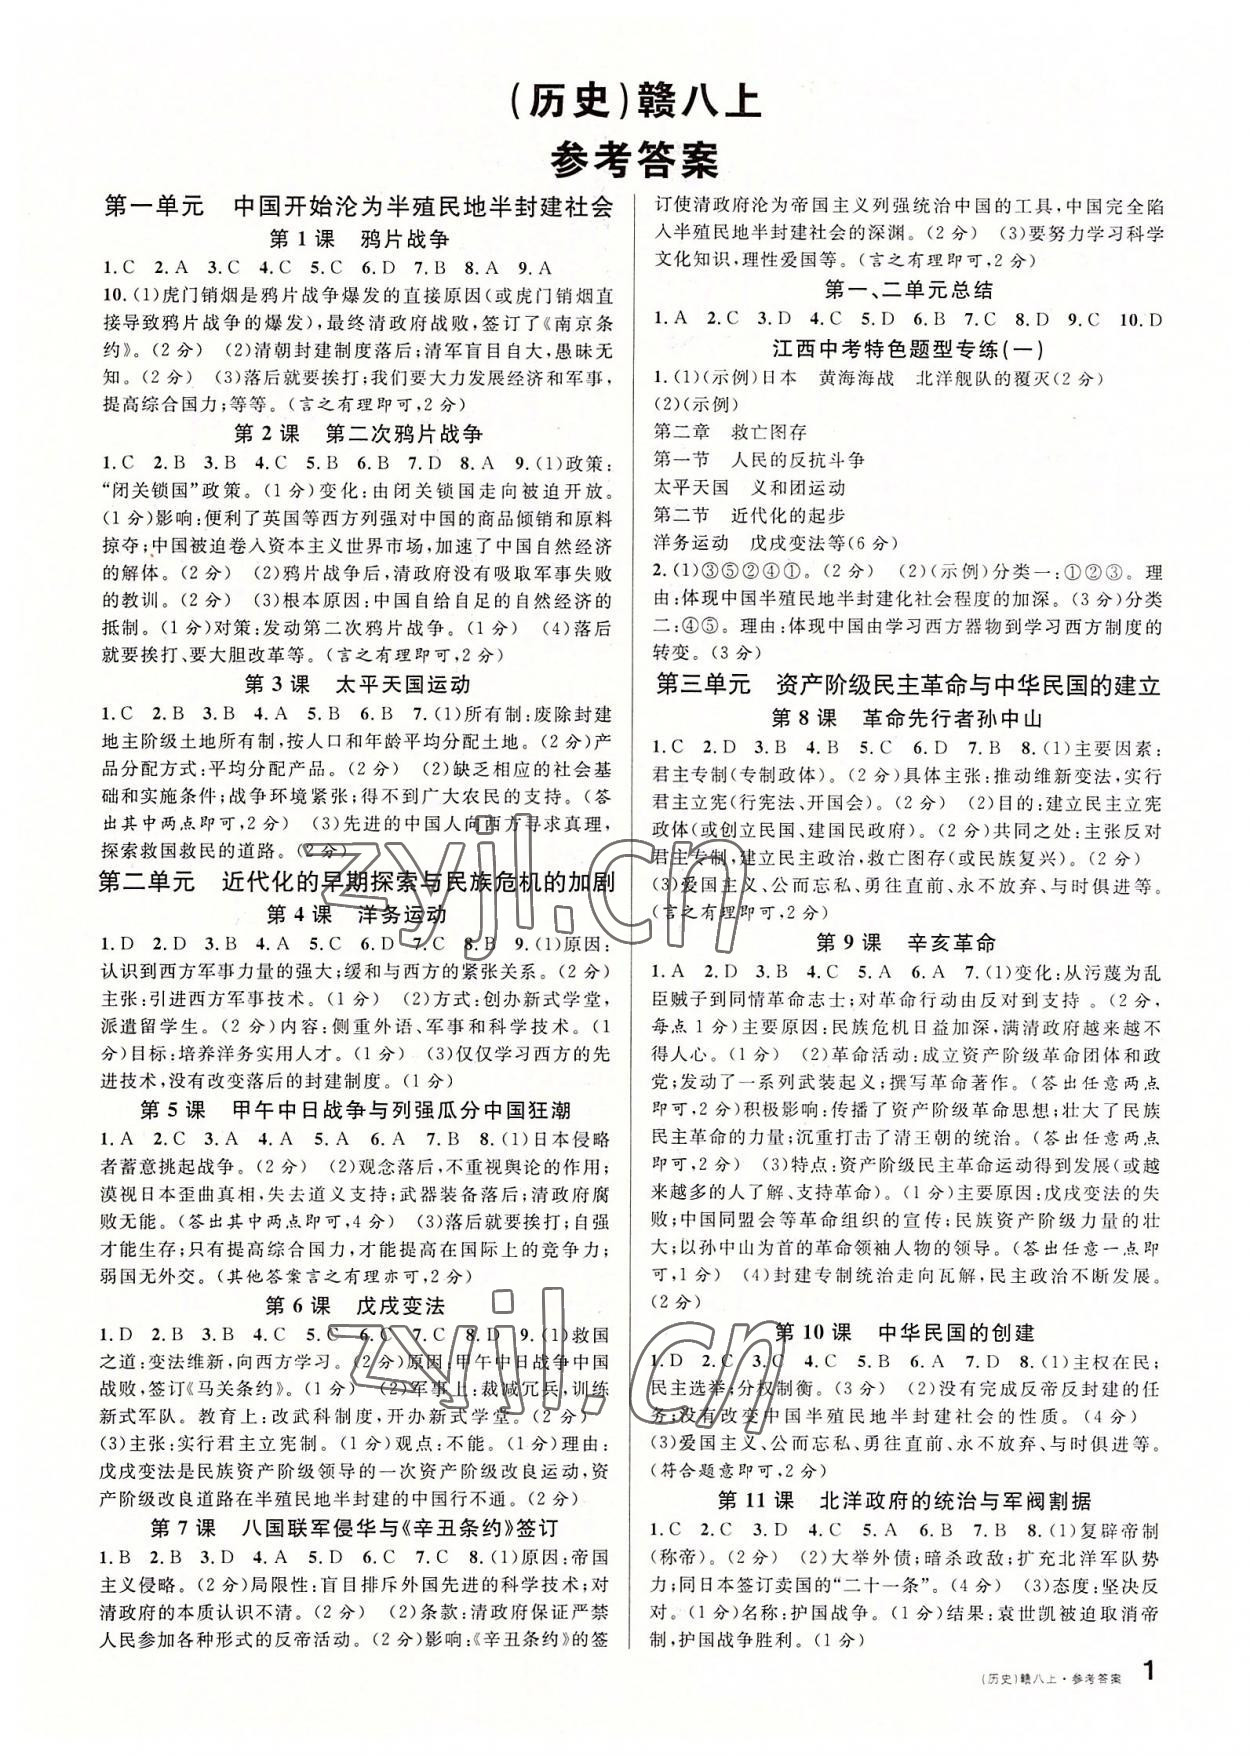 (历史)赣八上
参考答案
第一单元 中国开始沦为半殖民地半封建社会
第 1 课 鸦片战争
1. C 2. A 3. C 4. C 5. C 6. D 7. B 8. A 9. A
10. (1)虎门销烟是鸦片战争爆发的直接原因(或虎门销烟直
接导致鸦片战争的爆发),最终清政府战败,签订了《南京条
约》。(2 分) (2)清朝封建制度落后;清军盲目自大,愚昧无
知。(2 分) (3)落后就要挨打;我们要大力发展经济和军事,
提高综合国力;等等。(言之有理即可,2 分)
第 2 课 第二次鸦片战争
1. C 2. B 3. B 4. C 5. B 6. B 7. D 8. A 9. (1)政策:
“闭关锁国”政策。(1 分)变化:由闭关锁国走向被迫开放。
(1 分)影响:便利了英国等西方列强对中国的商品倾销和原料
掠夺;中国被迫卷入资本主义世界市场,加速了中国自然经济
的解体。(2 分) (2)鸦片战争后,清政府没有吸取军事失败
的教训。(2 分) (3)根本原因:中国自给自足的自然经济的
抵制。(1 分)对策:发动第二次鸦片战争。(1 分) (4)落后
就要挨打、要大胆改革等。(言之有理即可,2 分)
第 3 课 太平天国运动
1. C 2. B 3. B 4. A 5. B 6. B 7. (1)所有制:废除封建
地主阶级土地所有制,按人口和年龄平均分配土地。(2 分)产
品分配方式:平均分配产品。(2 分) (2)缺乏相应的社会基
础和实施条件;战争环境紧张;得不到广大农民的支持。(答
出其中两点即可,2 分) (3)先进的中国人向西方寻求真理,
探索救国救民的道路。(2 分)
第二单元 近代化的早期探索与民族危机的加剧
第 4 课 洋务运动
1. D 2. D 3. D 4. B 5. A 6. D 7. B 8. B 9. (1)原因:
认识到西方军事力量的强大;缓和与西方的紧张关系。(2 分)
主张:引进西方军事技术。(1 分) (2)方式:创办新式学堂,
派遣留学生。(2 分)内容:侧重外语、军事和科学技术。(1
分)目标:培养洋务实用人才。(1 分) (3)仅仅学习西方的先
进技术,没有改变落后的封建制度。(1 分)
第 5 课 甲午中日战争与列强瓜分中国狂潮
1. A 2. C 3. A 4. A 5. A 6. B 7. B 8. (1)日本侵略
者蓄意挑起战争。(2 分) (2)观念落后,不重视舆论的作用;
漠视日本歪曲真相,失去道义支持;武器装备落后;清政府腐
败无能。(答出其中两点即可,4 分) (3)落后就要挨打;自强
才能生存;只有提高综合国力,才能提高在国际上的竞争力;
弱国无外交。(其他答案言之有理亦可,2 分)
第 6 课 戊戌变法
1. D 2. B 3. B 4. C 5. C 6. C 7. C 8. D 9. (1)救国
之道:变法维新,向西方学习。(2 分)原因:甲午中日战争中国
战败,签订《马关条约》。(1 分) (2)军事上:裁减冗兵,训练
新式军队。教育上:改武科制度,开办新式学堂。(2 分)
(3)主张:实行君主立宪制。(1 分)观点:不能。(1 分)理由:
戊戌变法是民族资产阶级领导的一次资产阶级改良运动,资
产阶级改良道路在半殖民地半封建的中国行不通。(2 分)
第 7 课 八国联军侵华与《辛丑条约》签订
1. B 2. B 3. B 4. C 5. A 6. C 7. D 8. (1)原因:帝国
主义侵略。(2 分)局限性:盲目排斥外国先进的科学技术;对
清政府的本质认识不清。(2 分) (2)条款:清政府保证严禁
人民参加各种形式的反帝活动。(2 分)影响:《辛丑条约》的签
订使清政府沦为帝国主义列强统治中国的工具,中国完全陷
入半殖民地半封建社会的深渊。(2 分) (3)要努力学习科学
文化知识,理性爱国等。(言之有理即可,2 分)
第一、二单元总结
1. A 2. C 3. D 4. C 5. D 6. B 7. C 8. D 9. C 10. D
江西中考特色题型专练(一)
1. (1)(示例)日本 黄海海战 北洋舰队的覆灭(2 分)
(2)(示例)
第二章 救亡图存
第一节 人民的反抗斗争
太平天国 义和团运动
第二节 近代化的起步
洋务运动 戊戌变法等(6 分)
2. (1)③⑤②④①。(2 分) (2)(示例)分类一:①②③。理
由:体现中国半殖民地半封建化社会程度的加深。(3 分)分类
二:④⑤。理由:体现中国由学习西方器物到学习西方制度的
转变。(3 分)
第三单元 资产阶级民主革命与中华民国的建立
第 8 课 革命先行者孙中山
1. C 2. D 3. B 4. B 5. C 6. D 7. B 8. (1)主要因素:
君主专制(专制政体)。(2 分)具体主张:推动维新变法,实行
君主立宪(行宪法、开国会)。(2 分) (2)目的:建立民主立宪
政体(或创立民国、建国民政府)。(2 分)共同之处:主张反对
君主专制,建立民主政治,救亡图存(或民族复兴)。(2 分)
(3)爱国主义、公而忘私、勇往直前、永不放弃、与时俱进等。
(言之有理即可,2 分)
第 9 课 辛亥革命
1. A 2. D 3. B 4. C 5. B 6. A 7. (1)变化:从污蔑为乱
臣贼子到同情革命志士;对革命行动由反对到支持 。(2 分,
每点 1 分)主要原因:民族危机日益加深,满清政府越来越不
得人心。(1 分) (2)革命活动:成立资产阶级革命团体和政
党;发动了一系列武装起义;撰写革命著作。(答出任意两点
即可,2 分)积极影响:传播了资产阶级革命思想;壮大了民族
民主革命的力量;沉重打击了清王朝的统治。(答出任意两点
即可,2 分) (3)特点:资产阶级民主革命运动得到发展(或越
来越多的人了解、支持革命)。(1 分)主要原因:戊戌变法的失
败;中国同盟会等革命组织的宣传;民族资产阶级力量的壮
大;以孙中山为首的革命领袖人物的领导。(答出任意一点即
可,1 分) (4)封建专制统治走向瓦解,民主政治不断发展。
(2 分)
第 10 课 中华民国的创建
1. D 2. C 3. C 4. C 5. B 6. A 7. D 8. (1)主权在民;
民主选举;分权制衡。(3 分) (2)没有完成反帝反封建的任
务;没有改变中国半殖民地半封建社会的性质。(4 分)
(3)爱国主义、公而忘私、勇往直前、永不放弃、与时俱进等。
(符合题意即可,2 分)
第 11 课 北洋政府的统治与军阀割据
1. C 2. C 3. C 4. A 5. D 6. B 7. D 8. (1)复辟帝制
(称帝)。(2 分) (2)大举外债;暗杀政敌;扩充北洋军队势
力;同日本签订卖国的“二十一条”。(4 分) (3)态度:坚决反
对。(1 分)名称:护国战争。(1 分)结果:袁世凯被迫取消帝
制,护国战争胜利。(1 分)
(历史)赣八上·参考答案 1
zyjl.cn
zyjl.cn